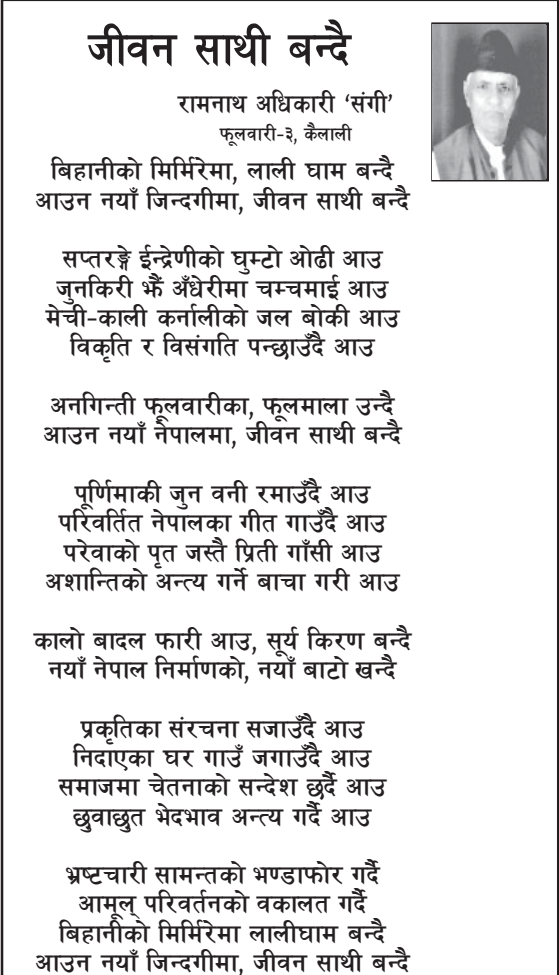 जीवन साथी बन्दै
रामनाथ अधिकारी ‘संगी’
फूलवारी-३, कैलाली
बिहानीको मिर्मिरेमा, लाली घाम बन्दै
आउन नयाँ जिन्दगीमा, जीवन साथी बन्दै
सप्तरङ्गे ईन्द्रेणीको घुम्टो ओढी आउ
जुनकिरी झैं अँधेरीमा चम्चमाई आउ
मेची-काली कर्नालीको जल बोकी आउ
विकृति र विसंगति पन्छाउँदै आउ
अनगिन्ती फूलवारीका, फूलमाला उन्दै
आउन नयाँ नेपालमा, जीवन साथी बन्दै
पूर्णिमाकी जुन वनी रमाउँदै आउ
परिवर्तित नेपालका गीत गाउँदै आउ
परेवाको पृत जस्तै प्रिती गाँसी आउ
अशान्तिको अन्त्य गर्ने बाचा गरी आउ
कालो बादल फारी आउ, सूर्य किरण बन्दै
नयाँ नेपाल निर्माणको, नयाँ बाटो खन्दै
प्रकृतिका संरचना सजाउँदै आउ
निदाएका घर गाउँ जगाउँदै आउ
समाजमा चेतनाको सन्देश छर्दै आउ
छुवाछुत भेदभाव अन्त्य गर्दै आउ
भ्रष्टचारी सामन्तको भण्डाफोर गर्दै
आमूल् परिवर्तनको वकालत गर्दै
बिहानीको मिर्मिरेमा लालीघाम बन्दै
आउन नयाँ जिन्दगीमा, जीवन साथी बन्दै